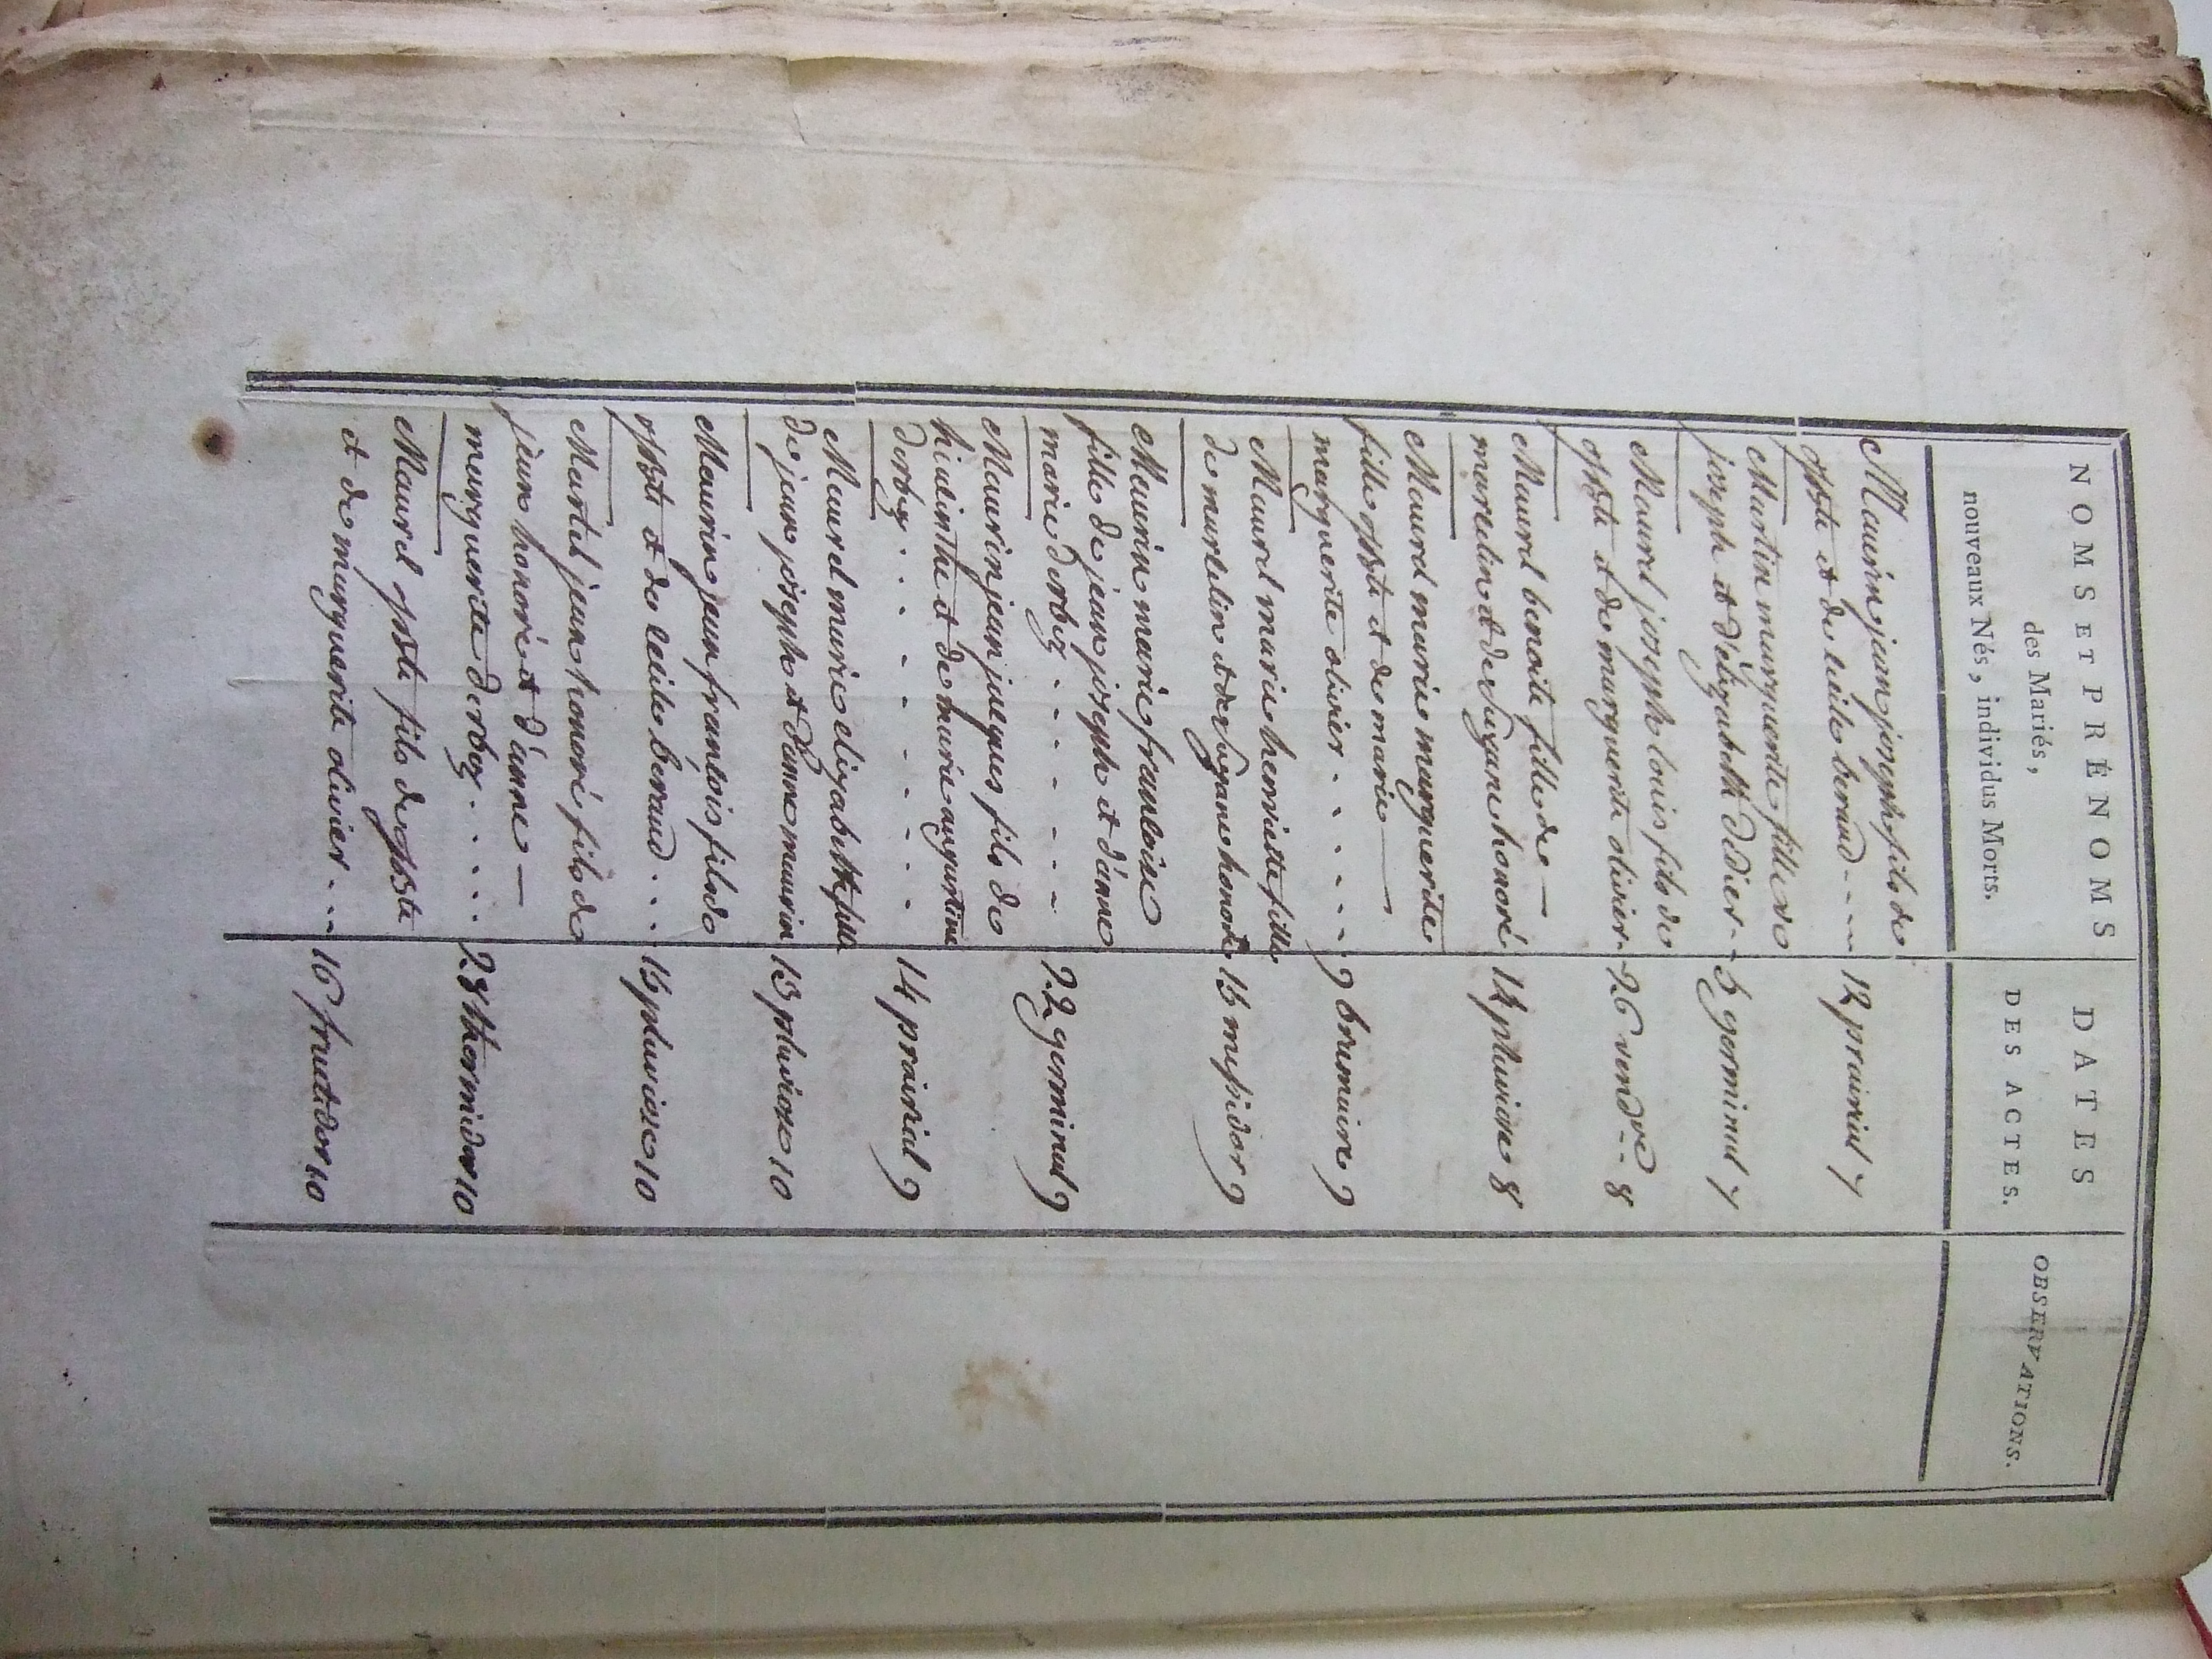 NOMS ET PRÉNOMS
des Mariés,
nouveaux Nés, individus Morts.
DATES
DES ACTES.
OBSERVATIONS.
Maurin jean joseph fils de
et de cécile beraud 12 prairial 7
Martin marguerite fille de
joseph et d'élizabeth didier 5 germinal 7
Maurel joseph louis fils de
et de marguerite olivier 26 vendre 8
Maurel benoite fille de
marcelin et de suzane honoré 14 pluviose 8
Maurel marie marguerite
fille et de marie
marguerite olivier 9 brumaire 9
Maurel marie henriette fille
de marcelin et de suzane honoré 15 messidor 9
Maurin marie francoise
fille de jean joseph et d'anne
marie derbez 22 germinal 9
Maurin jean jacques fils de
hiacinthe et de marie augustine
derbez 14 prairial 9
Maurel marie elizabeth fille
de jean joseph et d'anne maurin 13 pluviose 10
Maurin jean francois fils de
et de cécile beraud 15 pluviose 10
Martel jean honoré fils de
jean honoré et d'anne
marguerite derbez 28 thermidor 10
Maurel fils de
et de marguerite olivier 16 fructidor 10